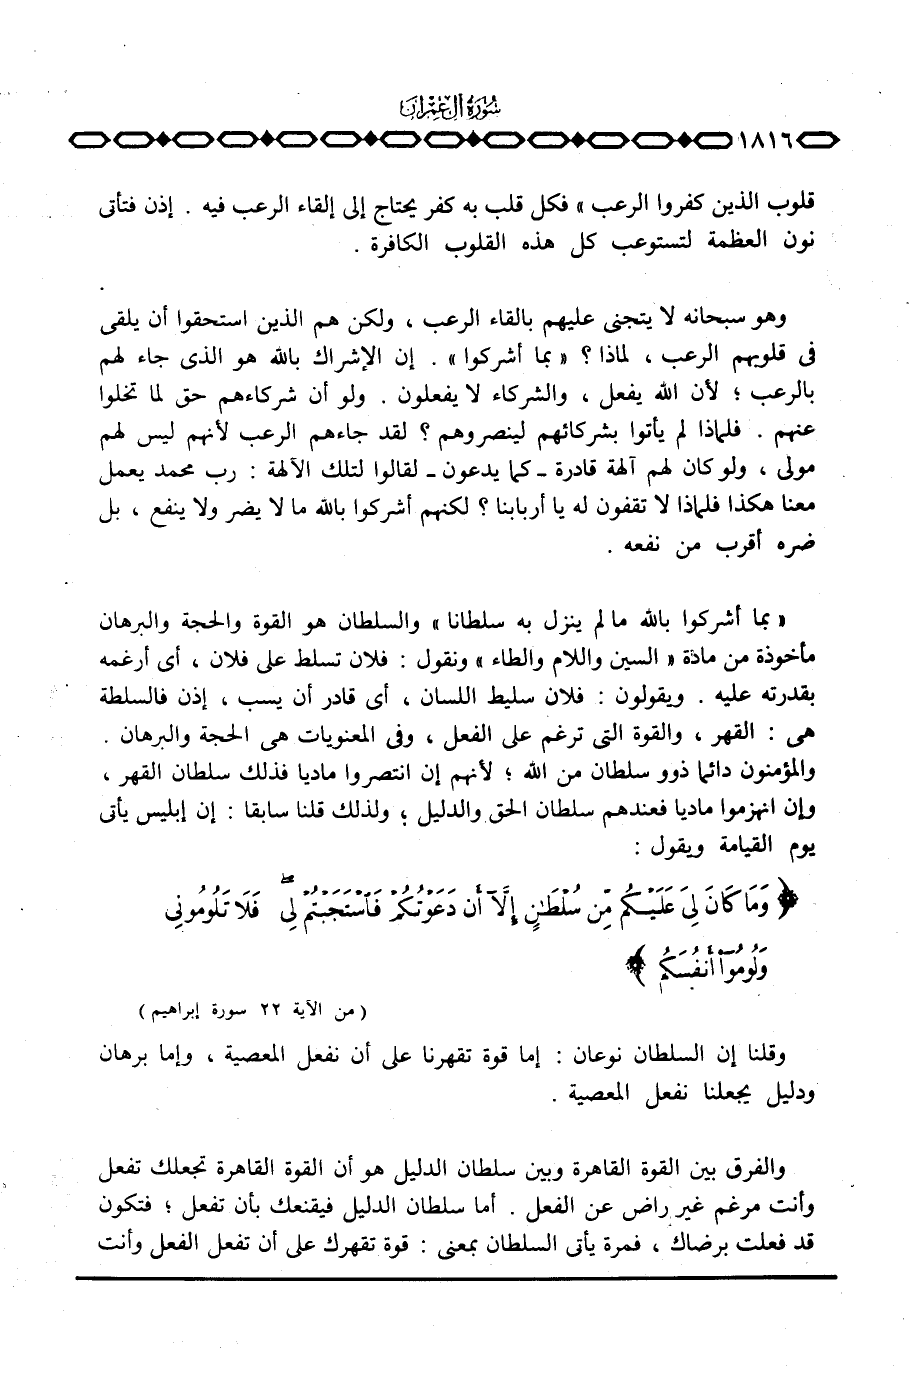 سورة آل عمران
١٨١٦
قلوب الذين كفروا الرعب » فكل قلب به كفر يحتاج إلى إلقاء الرعب فيه . إذن فتأتى
نون العظمة لتستوعب كل هذه القلوب الكافرة .
وهو سبحانه لا يتجنى عليهم بالقاء الرعب ، ولكن هم الذين استحقوا أن يلقى
فى قلوبهم الرعب ، لماذا ؟ « بما أشركوا » . إن الإشراك بالله هو الذى جاء لهم
بالرعب ؛ لأن الله يفعل ، والشركاء لا يفعلون . ولو أن شركاءهم حق لما تخلوا
عنهم . فلماذا لم يأتوا بشركائهم لينصروهم ؟ لقد جاءهم الرعب لأنهم ليس لهم
مولى ، ولو كان لهم آلهة قادرة ـ كما يدعون ـ لقالوا لتلك الآلهة : رب محمد يعمل
معنا هكذا فلماذا لا تقفون له يا أربابنا ؟ لكنهم أشركوا بالله ما لا يضر ولا ينفع ، بل
ضره أقرب من نفعه .
« بما أشركوا بالله ما لم ينزل به سلطانا » والسلطان هو القوة والحجة والبرهان
مأخوذة من مادة « السين واللام والطاء » ونقول : فلان تسلط على فلان ، أى أرغمه
بقدرته عليه . ويقولون : فلان سليط اللسان ، أى قادر أن يسب ، إذن فالسلطة
هى : القهر ، والقوة التى ترغم على الفعل ، وفى المعنويات هى الحجة والبرهان .
والمؤمنون دائما ذوو سلطان من الله ؛ لأنهم إن انتصروا ماديا فذلك سلطان القهر ،
وإن انهزموا ماديا فعندهم سلطان الحق والدليل ؛ ولذلك قلنا سابقا : إن إبليس يأتى
يوم القيامة ويقول :
﴿ وَمَا كَانَ لِىَ عَلَيْكُم مِّن سُلْطَٰنٍ إِلَّآ أَن دَعَوْتُكُمْ فَٱسْتَجَبْتُمْ لِى ۖ فَلَا تَلُومُونِى
وَلُومُوٓا۟ أَنفُسَكُم ﴾
( من الآية ٢٢ سورة إبراهيم )
وقلنا إن السلطان نوعان : إما قوة تقهرنا على أن نفعل المعصية ، وإما برهان
ودليل يجعلنا نفعل المعصية .
والفرق بين القوة القاهرة وبين سلطان الدليل هو أن القوة القاهرة تجعلك تفعل
وأنت مرغم غير راض عن الفعل . أما سلطان الدليل فيقنعك بأن تفعل ؛ فتكون
قد فعلت برضاك ، فمرة يأتى السلطان بمعنى : قوة تقهرك على أن تفعل الفعل وأنت